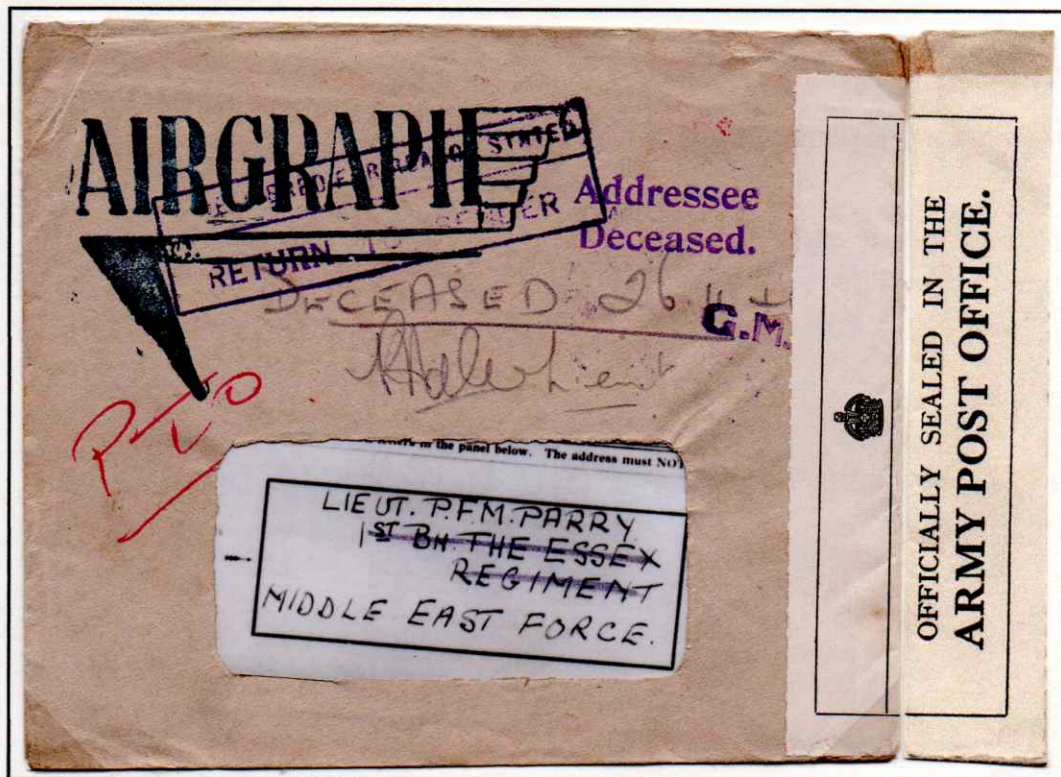 AIRGRAPH
FOR REASON STATED
RETURN TO SENDER
Addressee
Deceased.
DECEASED 26
G.M.
Lieut
PTO
in the panel below. The address must NOT
LIEUT. P.F.M. PARRY
1ST BN. THE ESSEX
REGIMENT
MIDDLE EAST FORCE.
OFFICIALLY SEALED IN THE
ARMY POST OFFICE.